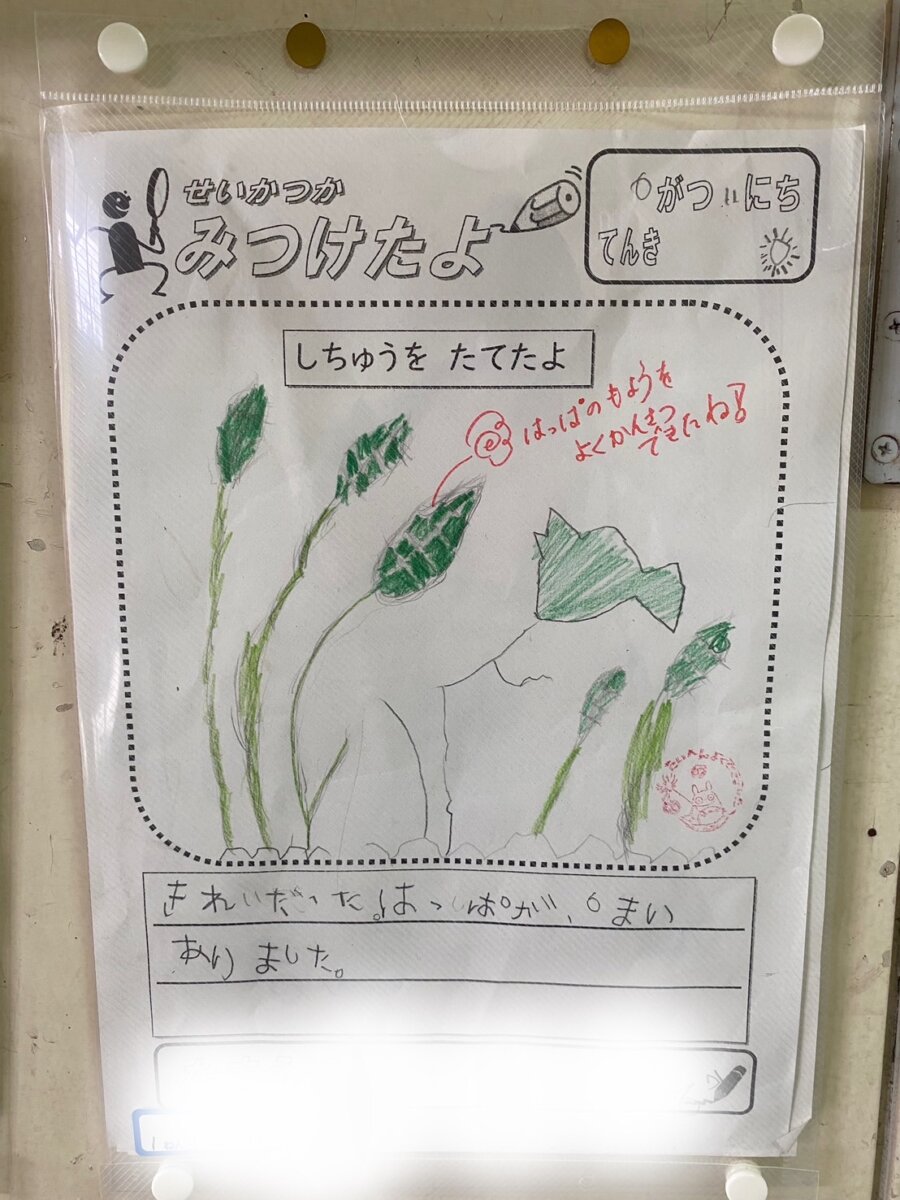 せいかつか
みつけたよ
6がつ 11にち
てんき
しちゅうを たてたよ
はっぱの もようを
よくかんさつ
できたね!
たいへんよくできました
きれいだった。はっぱが、6まい
ありました。